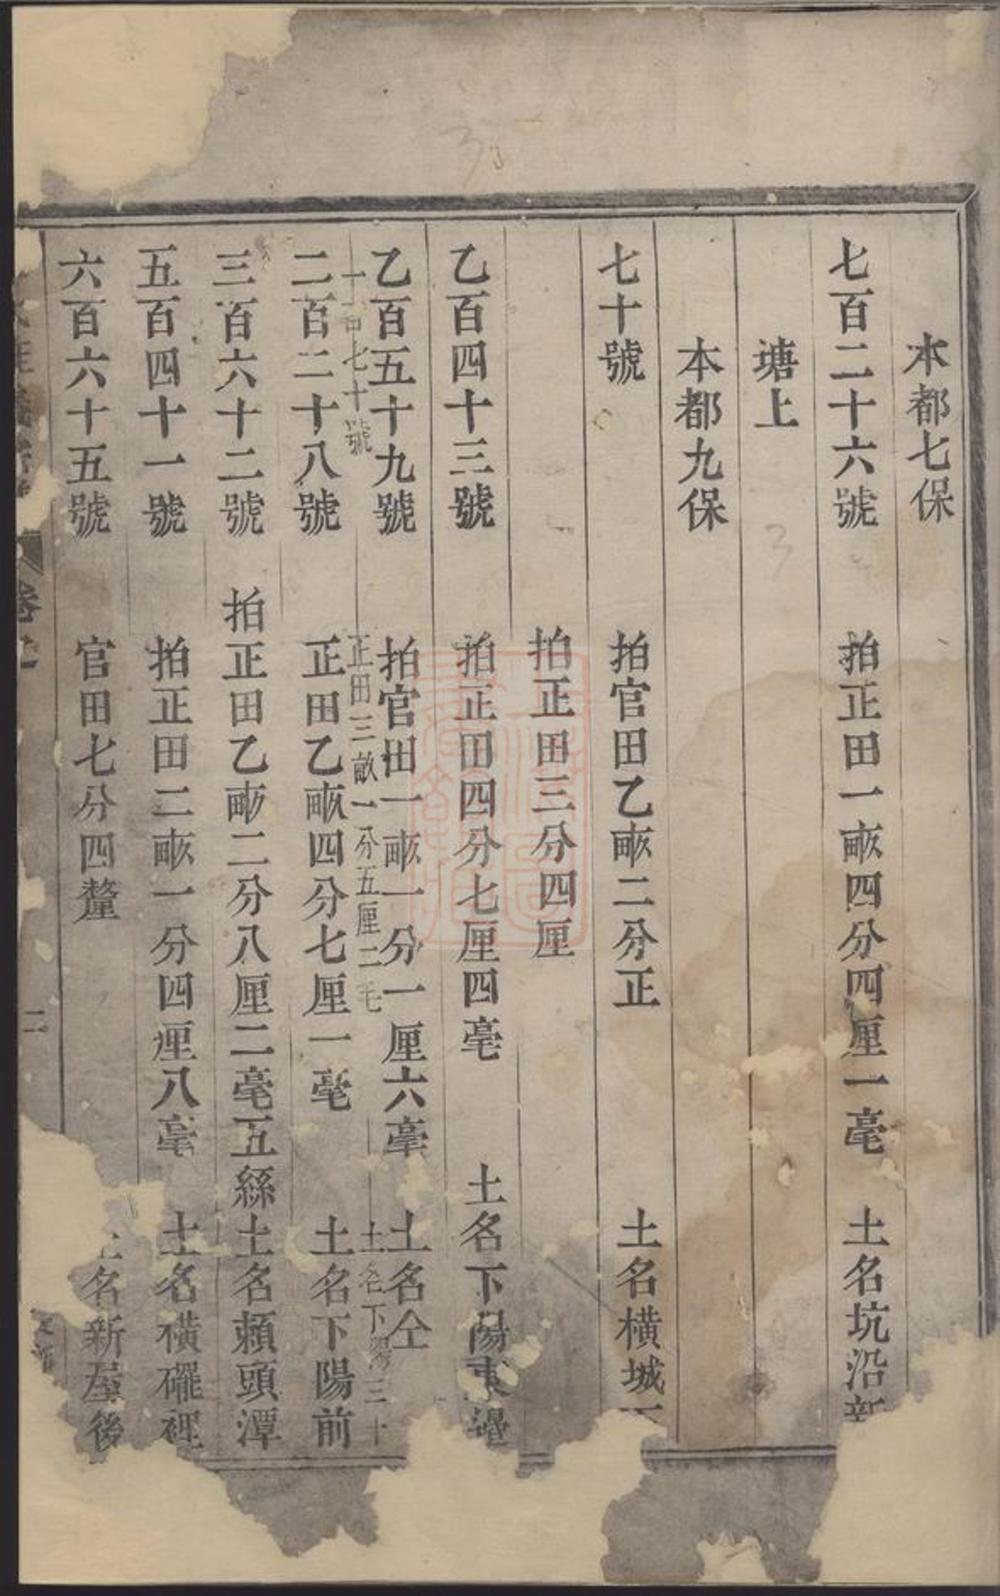 本都七保
七百二十六號 拍正田一畝四分四厘一毫 土名坑沿新
塘上
本都九保
七十號 拍官田乙畝二分正 土名橫城
拍正田三分四厘
乙百四十三號 拍正田四分七厘四毫 土名下陽東邊
乙百五十九號 拍官田一畝一分一厘六毫 土名仝
一百七十號 正田三畝一分五厘二毛 土名下陽三十
二百二十八號 正田乙畝四分七厘一毫 土名下陽前
三百六十二號 拍正田乙畝二分八厘二毫五絲 土名賴頭潭
五百四十一號 拍正田二畝一分四厘八毫 土名橫礶裡
六百六十五號 官田七分四釐 土名新屋後
卷
二